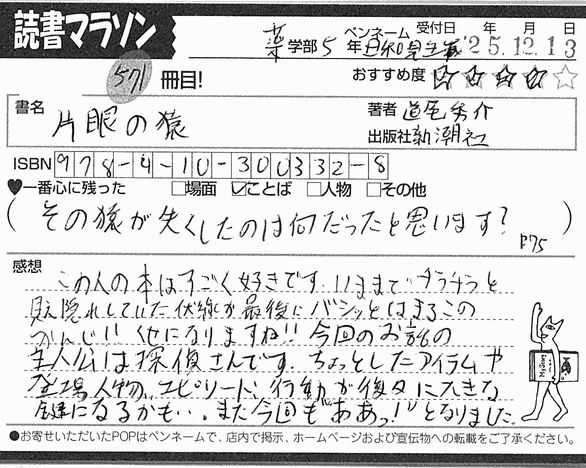 読書マラソン
571 冊目!
薬 学部 5 年 ペンネーム 日和見主義 受付日 '25 年 12 月 13 日
おすすめ度 ★★★★☆
書名 片眼の猿
著者 道尾秀介
出版社 新潮社
ISBN 978-4-10-300332-8
♥一番心に残った □場面 ☑ことば □人物 □その他
(その猿が失くしたのは何だったと思います? P75)
感想
この人の本はすごく好きです。いままでチラチラと
見え隠れしていた伏線が最後にバシッとはまるこの
かんじ!! くせになりますね!! 今回のお話の
主人公は探偵さんです。ちょっとしたアイテムや
登場人物、エピソード、行動が後々に大きな
鍵になるかも・・。また今回も"ああっ!"となりました。
●お寄せいただいたPOPはペンネームで、店内で掲示、ホームページおよび宣伝物への転載をご了承ください。